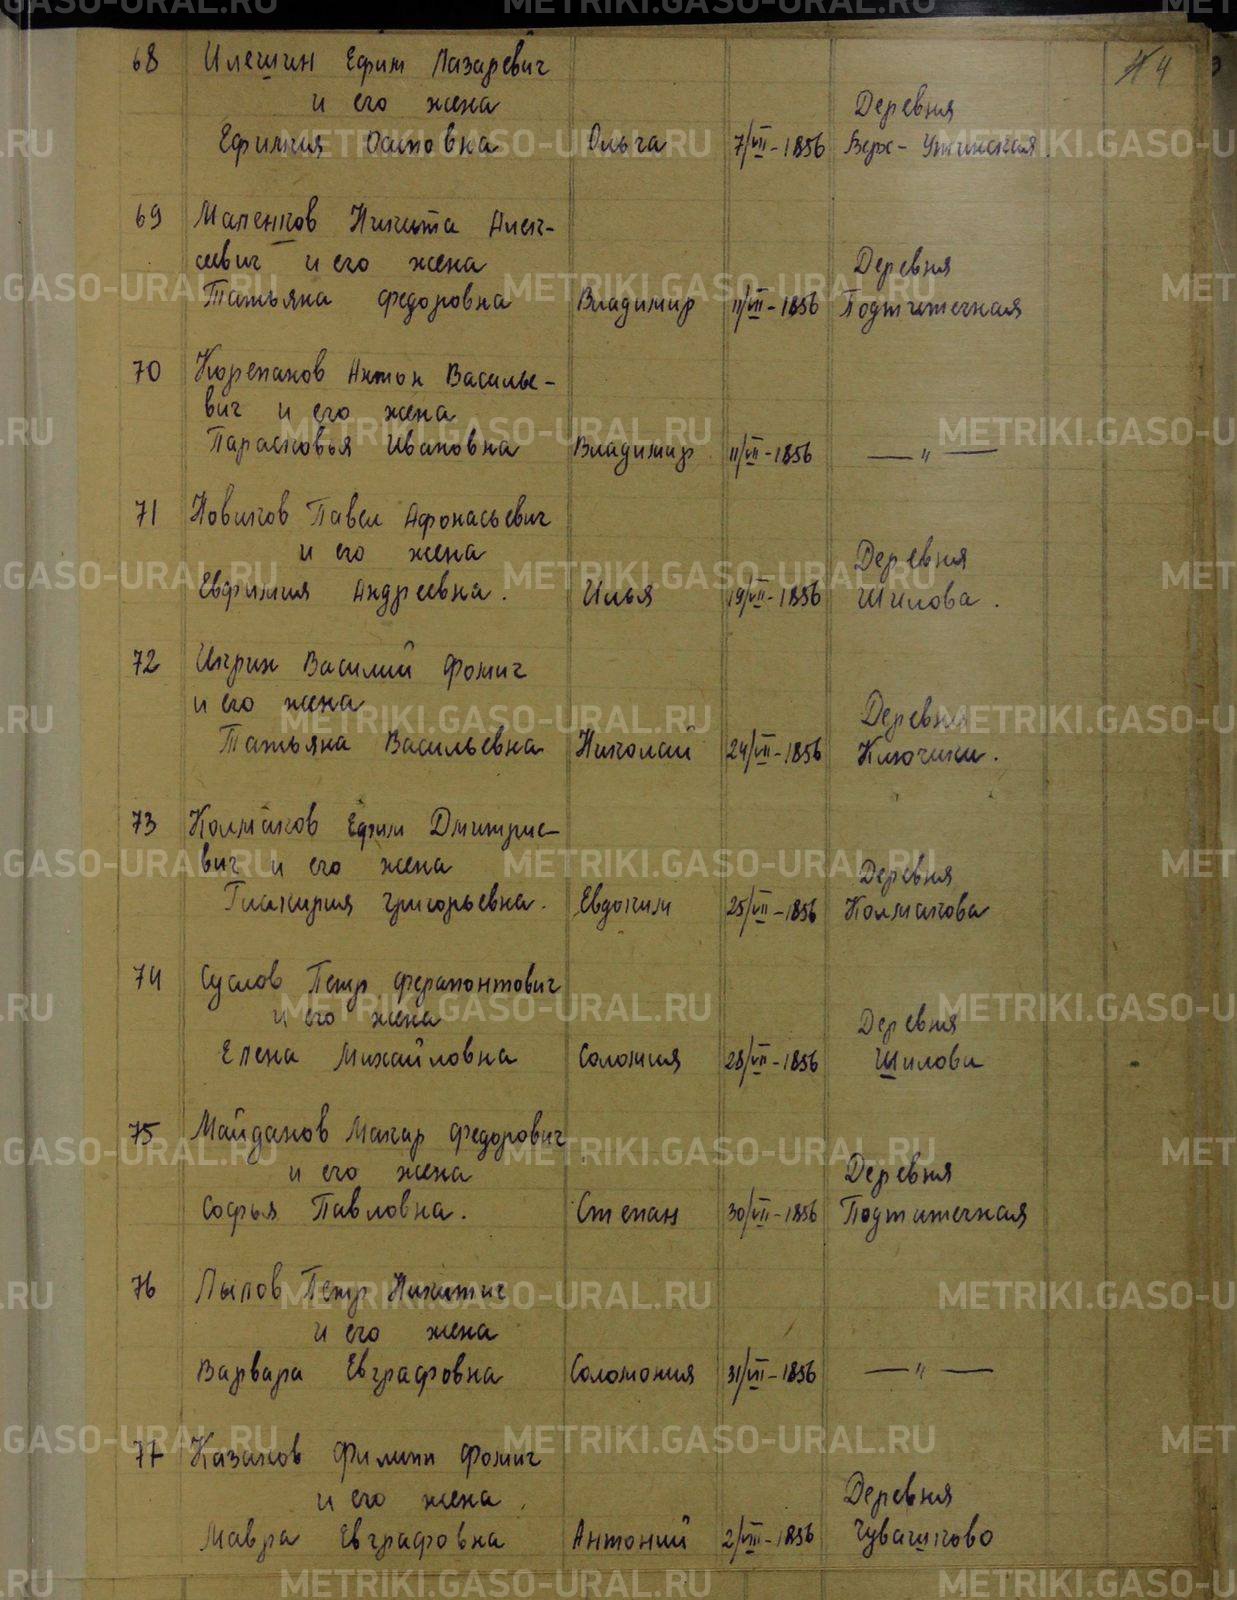 № 4
68 Илешин Ефим Лазаревич
и его жена Деревня
Ефимия Осиповна Ольга 7/VII-1856 Верх-Уткинская.
69 Маленков Никита Алек-
сеевич и его жена Деревня
Татьяна Федоровна Владимир 11/VII-1856 Подтитечная
70 Корепанов Антон Василье-
вич и его жена
Парасковья Ивановна Владимир 11/VII-1856 — " —
71 Новиков Павел Афонасьевич
и его жена Деревня
Евфимия Андреевна. Илья 19/VII-1856 Шилова.
72 Василий Фомич
и его жена Деревня
Татьяна Васильевна Николай 24/VII-1856 Ключики.
73 Колмаков Ефим Дмитрие-
вич и его жена Деревня
Гликирия Григорьевна. Евдоким 25/VII-1856 Колмакова
74 Суслов Петр Ферапонтович
и его жена Деревня
Елена Михайловна Соломия 28/VII-1856 Шилова
75 Майданов Макар Федорович
и его жена Деревня
Софья Павловна. Степан 30/VII-1856 Подтитечная
76 Лылов Петр Никитич
и его жена
Варвара Евграфовна Соломония 31/VII-1856 — " —
77 Казаков Филипп Фомич
и его жена. Деревня
Мавра Евграфовна Антоний 2/VIII-1856 Чувашково
METRIKI.GASO-URAL.RU